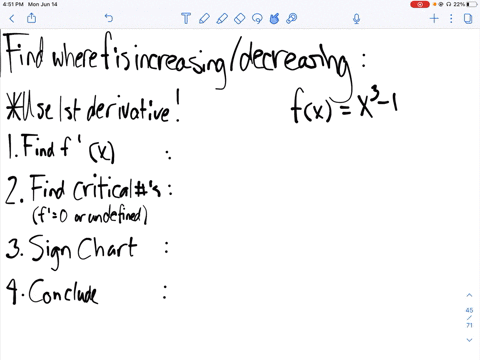 4:51 PM Mon Jun 14
22%
Find where f is increasing/decreasing:
*Use 1st derivative!
f(x) = x³-1
1. Find f'(x) :
2. Find Critical #'s :
(f'=0 or undefined)
3. Sign Chart :
4. Conclude :
45
/
71